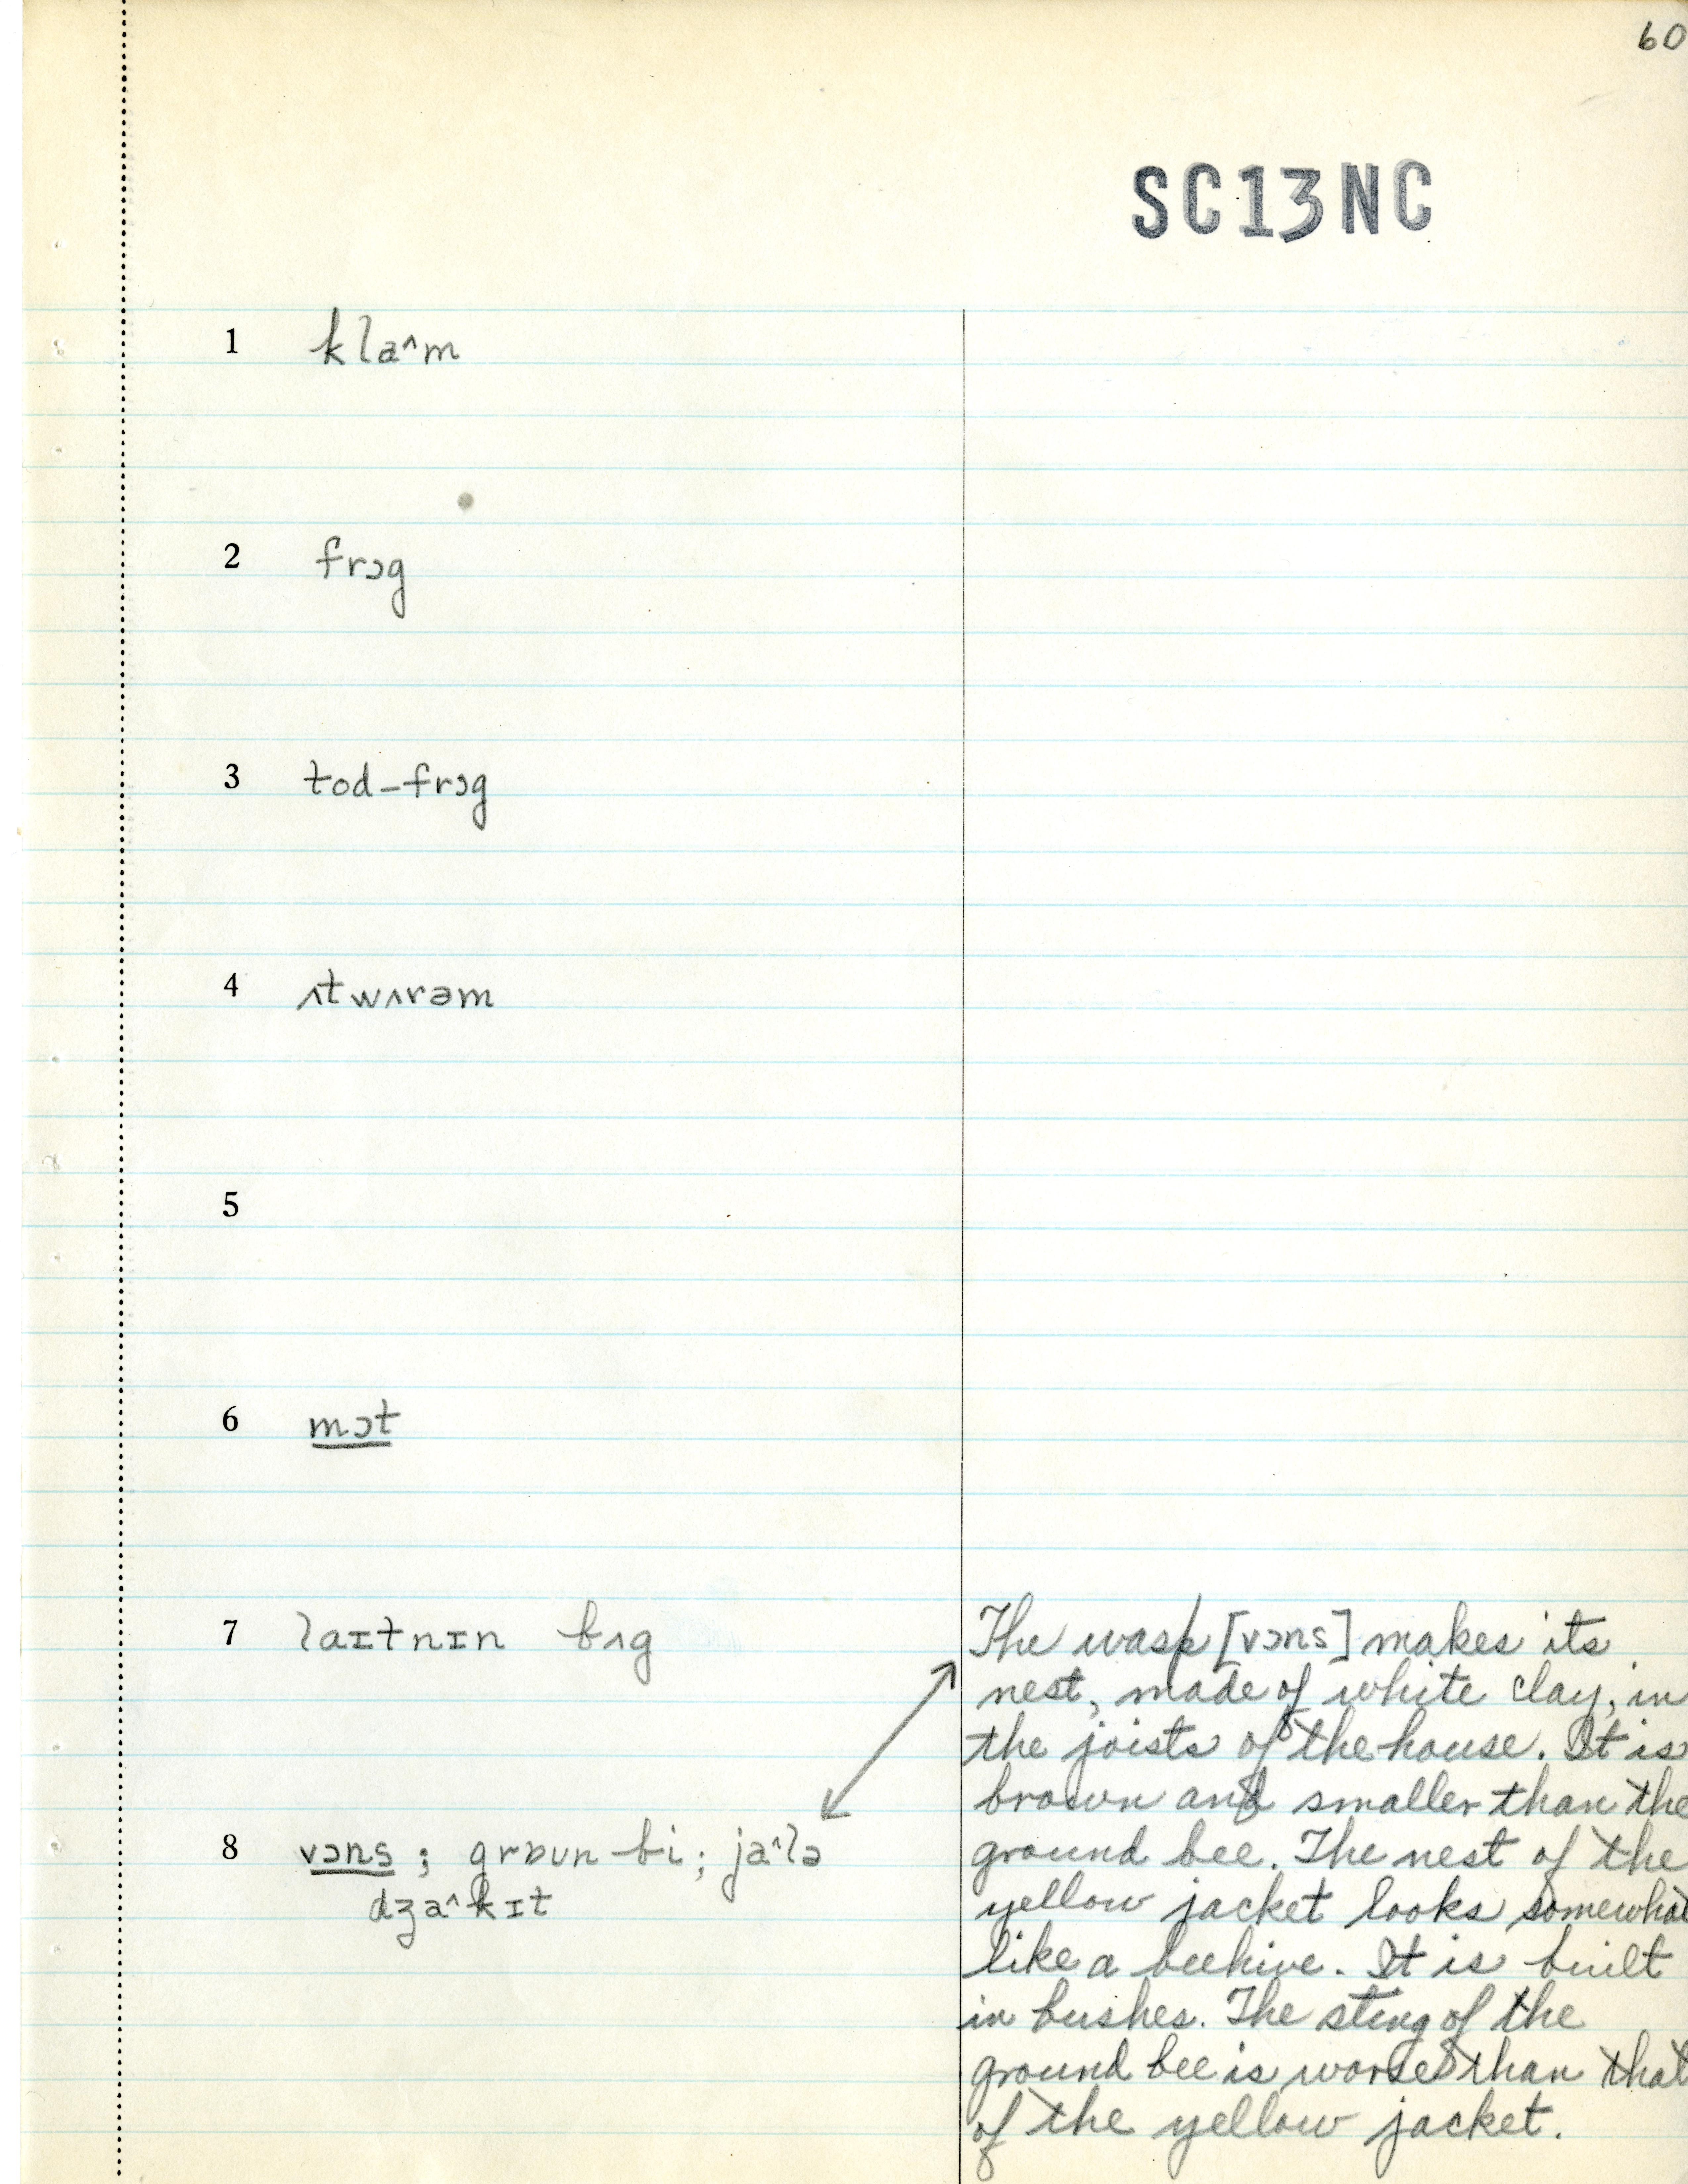 60
SC13NC
1 kla^m
2 frɔg
3 tod-frɔg
4 ʌtwʌrəm
5
6 mɔt
7 laɪtnɪn bʌg
8 vɔns; grɒun bi; ja^lə
dʒa^kɪt
The wasp [vɔns] makes its
nest, made of white clay, in
the joists of the house. It is
brown and smaller than the
ground bee. The nest of the
yellow jacket looks somewhat
like a beehive. It is built
in bushes. The sting of the
ground bee is worse than that
of the yellow jacket.